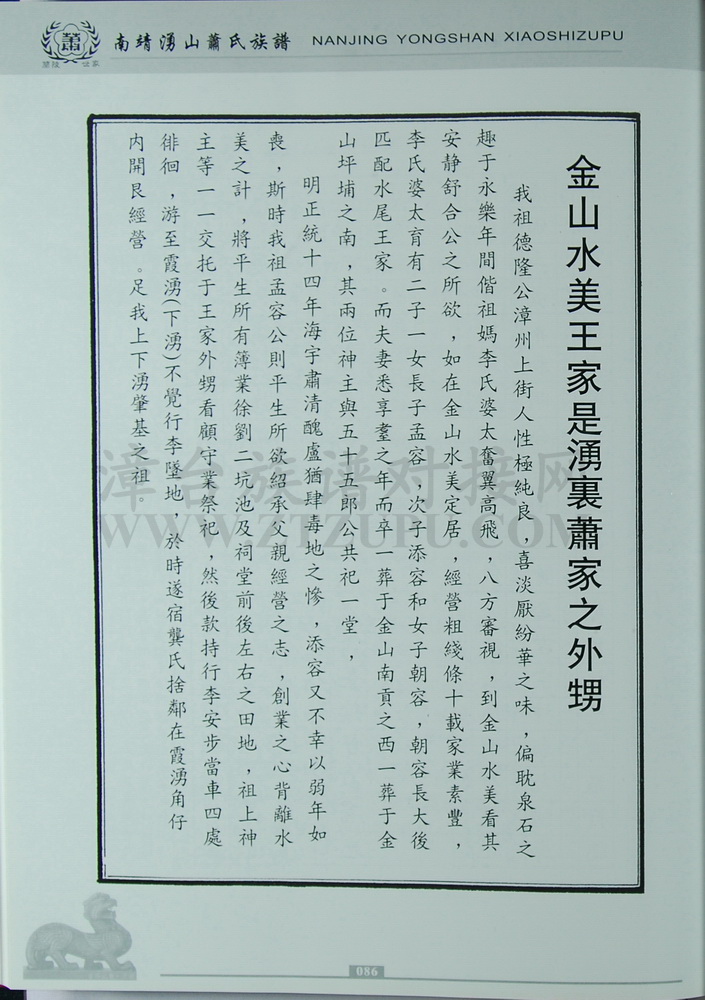 蕭
蘭陵 世家
南靖湧山蕭氏族譜 NANJING YONGSHAN XIAOSHIZUPU
金山水美王家是湧裏蕭家之外甥
我祖德隆公漳州上街人性極純良，喜淡厭紛華之味，偏耽泉石之
趣于永樂年間偕祖媽李氏婆太奮翼高飛，八方審視，到金山水美看其
安静舒合公之所欲，如在金山水美定居，經營粗綫條十載家業素豐，
李氏婆太育有二子一女長子孟容，次子添容和女子朝容，朝容長大後
匹配水尾王家。而夫妻悉享耋之年而卒一葬于金山南貢之西一葬于金
山坪埔之南，其兩位神主與五十五郎公共祀一堂，
明正統十四年海宇肅清醜盧猶肆毒地之慘，添容又不幸以弱年如
喪，斯時我祖孟容公則平生所欲紹承父親經營之志，創業之心背離水
美之計，將平生所有薄業徐劉二坑池及祠堂前後左右之田地，祖上神
主等一一交托于王家外甥看顧守業祭祀，然後款持行李安步當車四處
徘徊，游至霞湧(下湧)不覺行李墜地，於時遂宿龔氏捨鄰在霞湧角仔
内開艮經營。足我上下湧肇基之祖。
漳台族谱对接网
WWW.ZTZUPU.COM
086